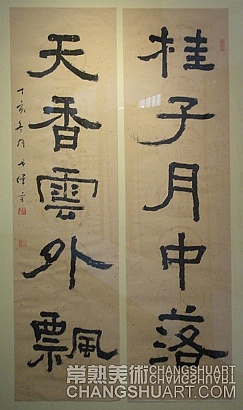 桂子月中落
天香雲外飄
丁亥冬月
常熟美術 CHANGSHUART
CHANGSHUART.COM